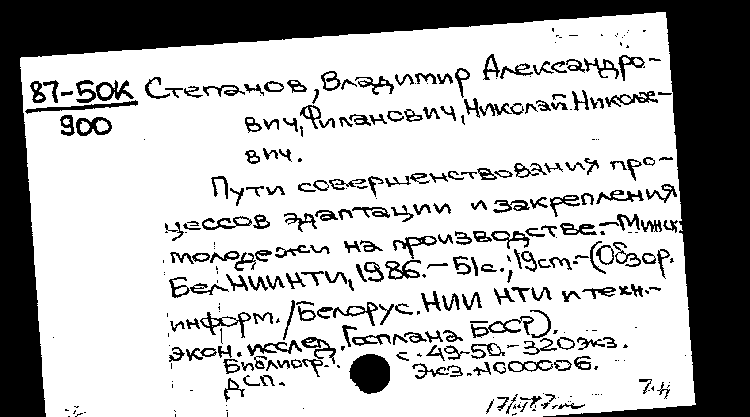 87-50К Степанов, Владимир Александро-
900 вич, Филанович, Николай Николае-
вич.
Пути совершенствования про-
цессов адаптации и закрепления
молодежи на производстве.-Минск:
БелНИИНТИ, 1986.-51с.; 19см.-(Обзор.
информ./Белорус. НИИ НТИ и техн.-
экон. исслед. Госплана БССР).
Библиогр.: с. 49-50.-320экз.
ДСП. Экз.N000006.